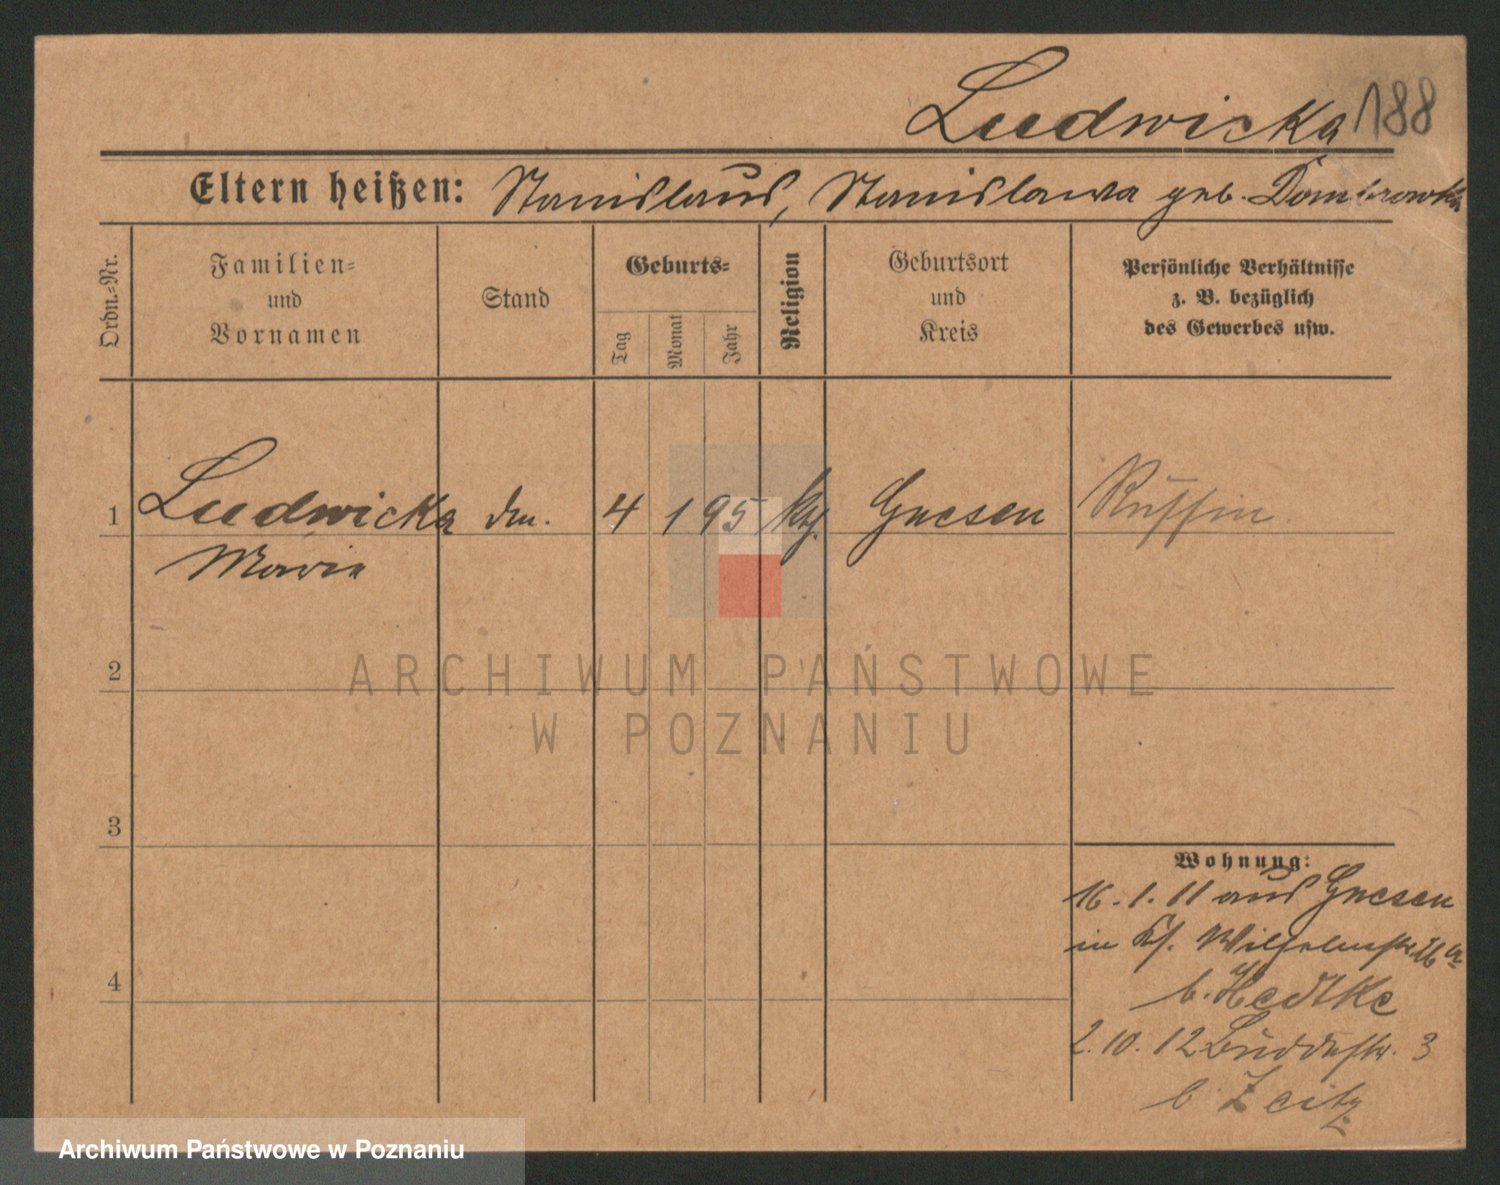 Ludwicka 188
Eltern heißen: Stanislaus, Stanislawa geb. Dombrowska
Ordn.-Nr.
Familien- und Vornamen
Stand
Geburts-
Tag
Monat
Jahr
Religion
Geburtsort und Kreis
Persönliche Verhältnisse
z. B. bezüglich
des Gewerbes usw.
1 Ludwicka 4 1 95 kth. Gnesen
Maria
2
ARCHIWUM PAŃSTWOWE
W POZNANIU
3
Wohnung:
16.1.11 aus Gnesen
in Wilhelmstr. 16a
4
b. Hedtke
2.10.12 Buddestr. 3
b Zeitz
Archiwum Państwowe w Poznaniu